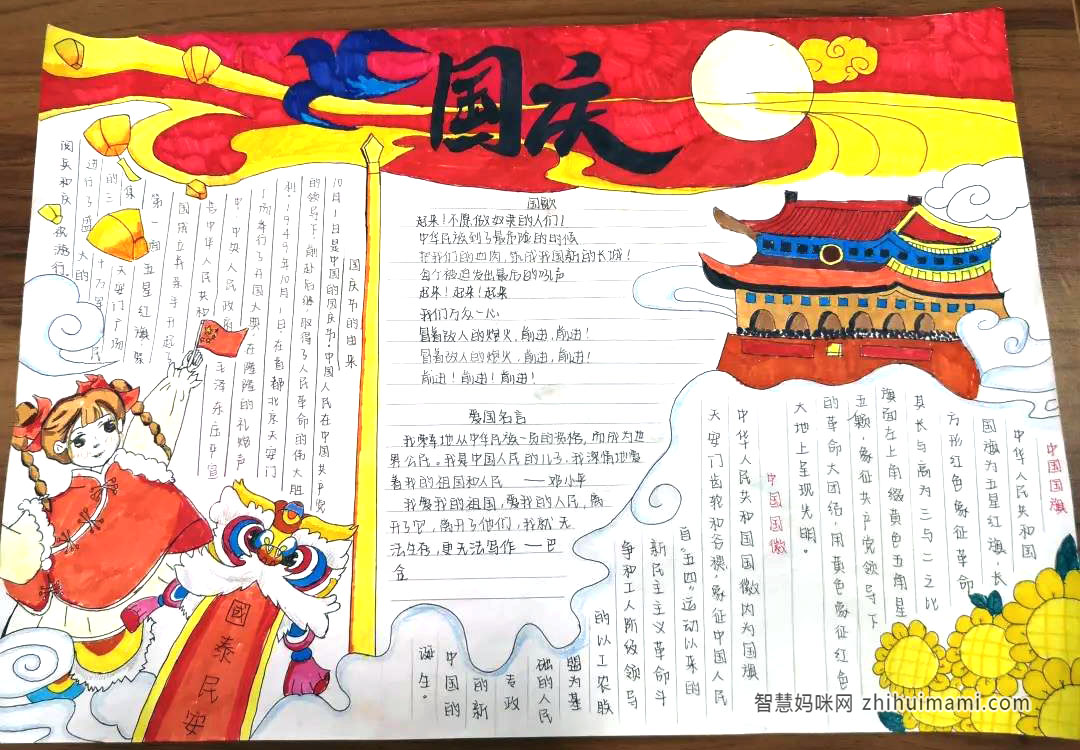 国庆
国庆节的由来
10月1日是中国的国庆节。中国人民在中国共产党
的领导下,前赴后继,取得了人民革命的伟大胜
利。1949年10月1日,在首都北京天安门
广场举行了开国大典,在隆隆的礼炮声
中,中央人民政府 毛泽东庄严宣
告中华人民共和
国成立并亲手升起了
第一面 五星红旗。聚
集 天安门广场
的三 十万军民
进行了盛大的
阅兵和庆祝游行
国歌
起来!不愿做奴隶的人们!
把我们的血肉,筑成我国新的长城!
中华民族到了最危险的时候
每个被迫发出最后的吼声
起来!起来!起来
我们万众一心
冒着敌人的炮火,前进,前进!
冒着敌人的炮火,前进,前进!
前进!前进!前进!
爱国名言
我荣幸地从中华民族一员的资格,而成为世
界公民。我是中国人民的儿子,我深情地爱
着我的祖国和人民 ——邓小平
我爱我的祖国,爱我的人民,离
开了它,离开了他们,我就无
法生存,更无法写作 ——巴
金
中国国旗
中华人民共和国
国旗为五星红旗,长
方形红色象征革命
其长与高为三与二之比
旗面左上角缀黄色五角星
五颗,象征共产党领导下
的革命大团结,用黄色象征红色
大地上呈现光明。
中国国徽
中华人民共和国国徽内为国旗
天安门齿轮和谷穗,象征中国人民
自“五四”运动以来的
新民主主义革命斗
争和工人阶级领导
的以工农联
盟为基
础的人民
专政
的新
中国的
诞生。
國泰民安
智慧妈咪网 zhihuimami.com